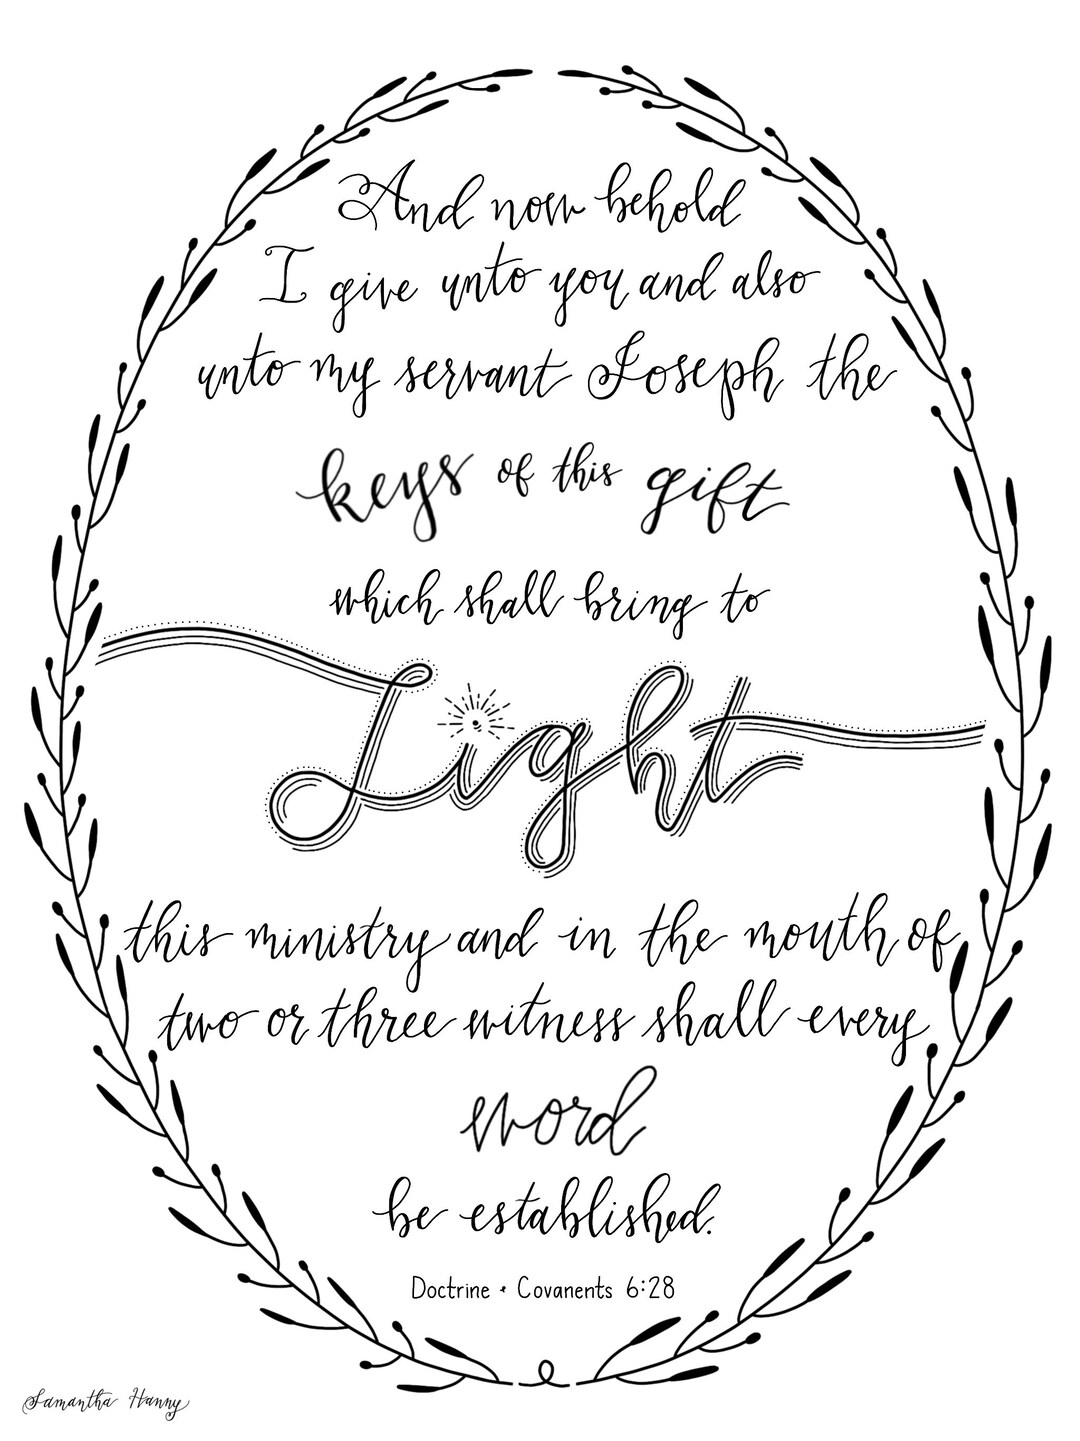 And now behold
I give unto you and also
unto my servant Joseph the
keys of this gift
which shall bring to
Light
this ministry and in the mouth of
two or three witness shall every
word
be established.
Doctrine + Covanents 6:28
Samantha Hanny